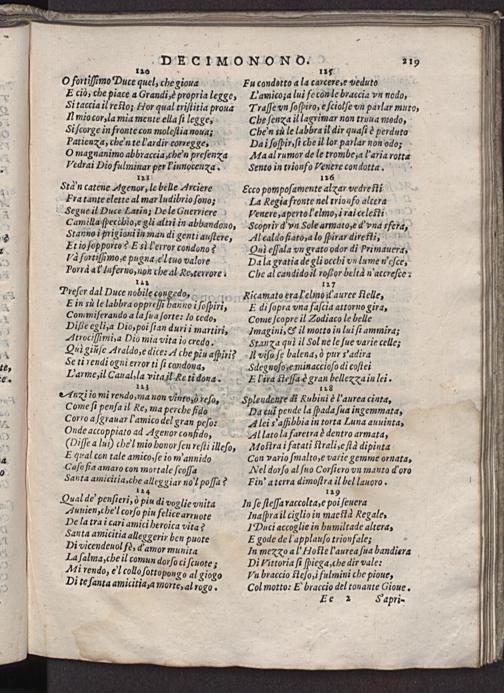 DECIMONONO. 219
120
O fortissimo Duce quel, che gioua
E ciò, che piace a Grandi, è propria legge,
Si taccia il resto; Hor qual tristitia proua
Il mio cor, la mia mente ella si legge,
Si scorge in fronte con molestia noua;
Patienza, che'n te l'ardir corregge,
O magnanimo abbraccia, che'n presenza
Vedrai Dio fulminar per l'innocenza.
121
Stà'n catene Agenor, le belle Arciere
Fra tante elette al mar ludibrio sono;
Segue il Duce Latin; De le Guerriere
Camilla specchio, e gli altri in abbandono,
Stanno i prigioni in man di genti austere,
Et io sopporto? E sì l'error condono?
Và fortissimo, e pugna, e'l tuo valore
Porrà a l'Inferno, non che al Re, terrore.
122
Preser dal Duce nobile congedo,
E in sù le labbra oppressi hanno i sospiri,
Commiserando a la sua sorte: Io cedo,
Disse egli, a Dio, poi s'an duri i martiri,
Atrocissimi, a Dio mia vita io credo.
Quì giùse Araldo, e dice: A che piu aspiri?
Se ti rendi ogni error ti si condona,
L'arme, il Caual, la vita il Re ti dona.
123
Anzi io mi rendo, ma non vinto, ò reso,
Come si pensa il Re, ma perche fido
Corro a sgrauar l'amico del gran peso:
Onde accoppiato ad Agenor confido,
(Disse a lui) che'l mio honor sen resti illeso,
E qual con tale amico, se io m'annido
Caso sia amaro con mortale scossa
Santa amicitia, che alleggiar nõ'l possa?
124
Qual de' pensieri, ò piu di voglie vnita
Auuien, che'l corso piu felice arruote
De la tra i cari amici heroica vita?
Santa amicitia alleggerir ben puote
Di vicendeuol fè, d'amor munita
La salma, che il comun dorso ci scuote;
Mi rendo, e'l collo sottopongo al giogo
Di te santa amicitia, a morte, al rogo.
125
Fu condotto a la carcere, e veduto
L'amico; a lui fe con le braccia vn nodo,
Trasse vn sospiro, e sciolse vn parlar muto,
Che senza il lagrimar non troua modo,
Che'n sù le labbra il dir quasi è perduto
Da i sospir, sì che il lor parlar non odo;
Ma al rumor de le trombe, a l'aria rotta
Sento in trionfo Venere condotta.
126
Ecco pomposamente alzar vedresti
La Regia fronte nel trionfo altera
Venere, aperto l'elmo, i rai celesti
Scoprir d'vn Sole armato, e d'vna sfera,
Al caldo fiato, a lo spirar diresti,
Quì essala vn grato odor di Primauera,
Da la gratia de gli occhi vn lume n'esce,
Che al candido il rossor beltà n'accresce:
127
Ricamato era l'elmo d'auree stelle,
E di sopra vna fascia attorno gira,
Come scopre il Zodiaco le belle
Imagini, & il motto in lui si ammira;
Stanza quì il Sol ne le sue varie celle;
Il viso se balena, ò pur s'adira
Sdegnoso, e minaccioso di costei
E l'ira stessa è gran bellezza in lei.
128
Splendente di Rubini è l'aurea cinta,
Da cui pende la spada sua ingemmata,
A lei s'assibbia in torta Luna auuinta,
Al lato la faretra è dentro armata,
Mostra i fatati strali, e stà dipinta
Con vario smalto, e varie gemme ornata,
Nel dorso al suo Corsiero vn manto d'oro
Fin' a terra dimostra il bel lauoro.
129
In se stessa raccolta, e poi seuera
Inaspra il ciglio in maestà Regale,
I Duci accoglie in humiltade altera,
E gode de l'applauso trionfale;
In mezzo a l'Hoste l'aurea sua bandiera
Di Vittoria si spiega, che dir vale:
Vn braccio steso, i fulmini che pioue,
Col motto: E' braccio del tonante Gioue.
Ee 2 S'apri-